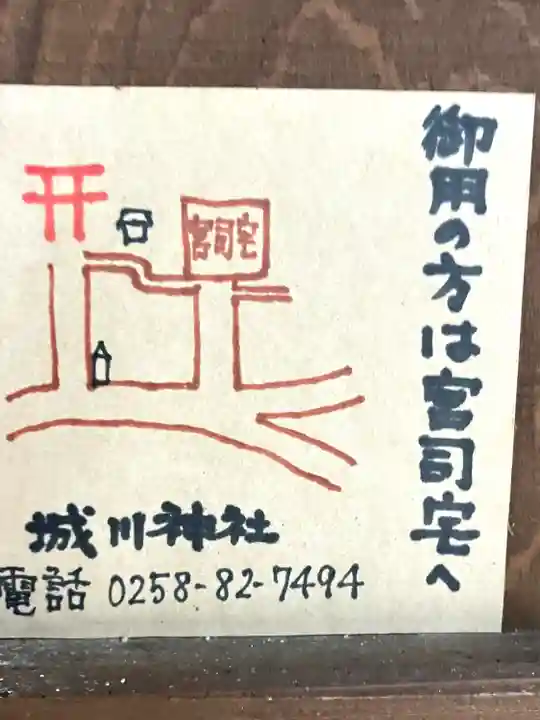 御用の方は宮司宅へ
宮司宅
城川神社
電話 0258-82-7494